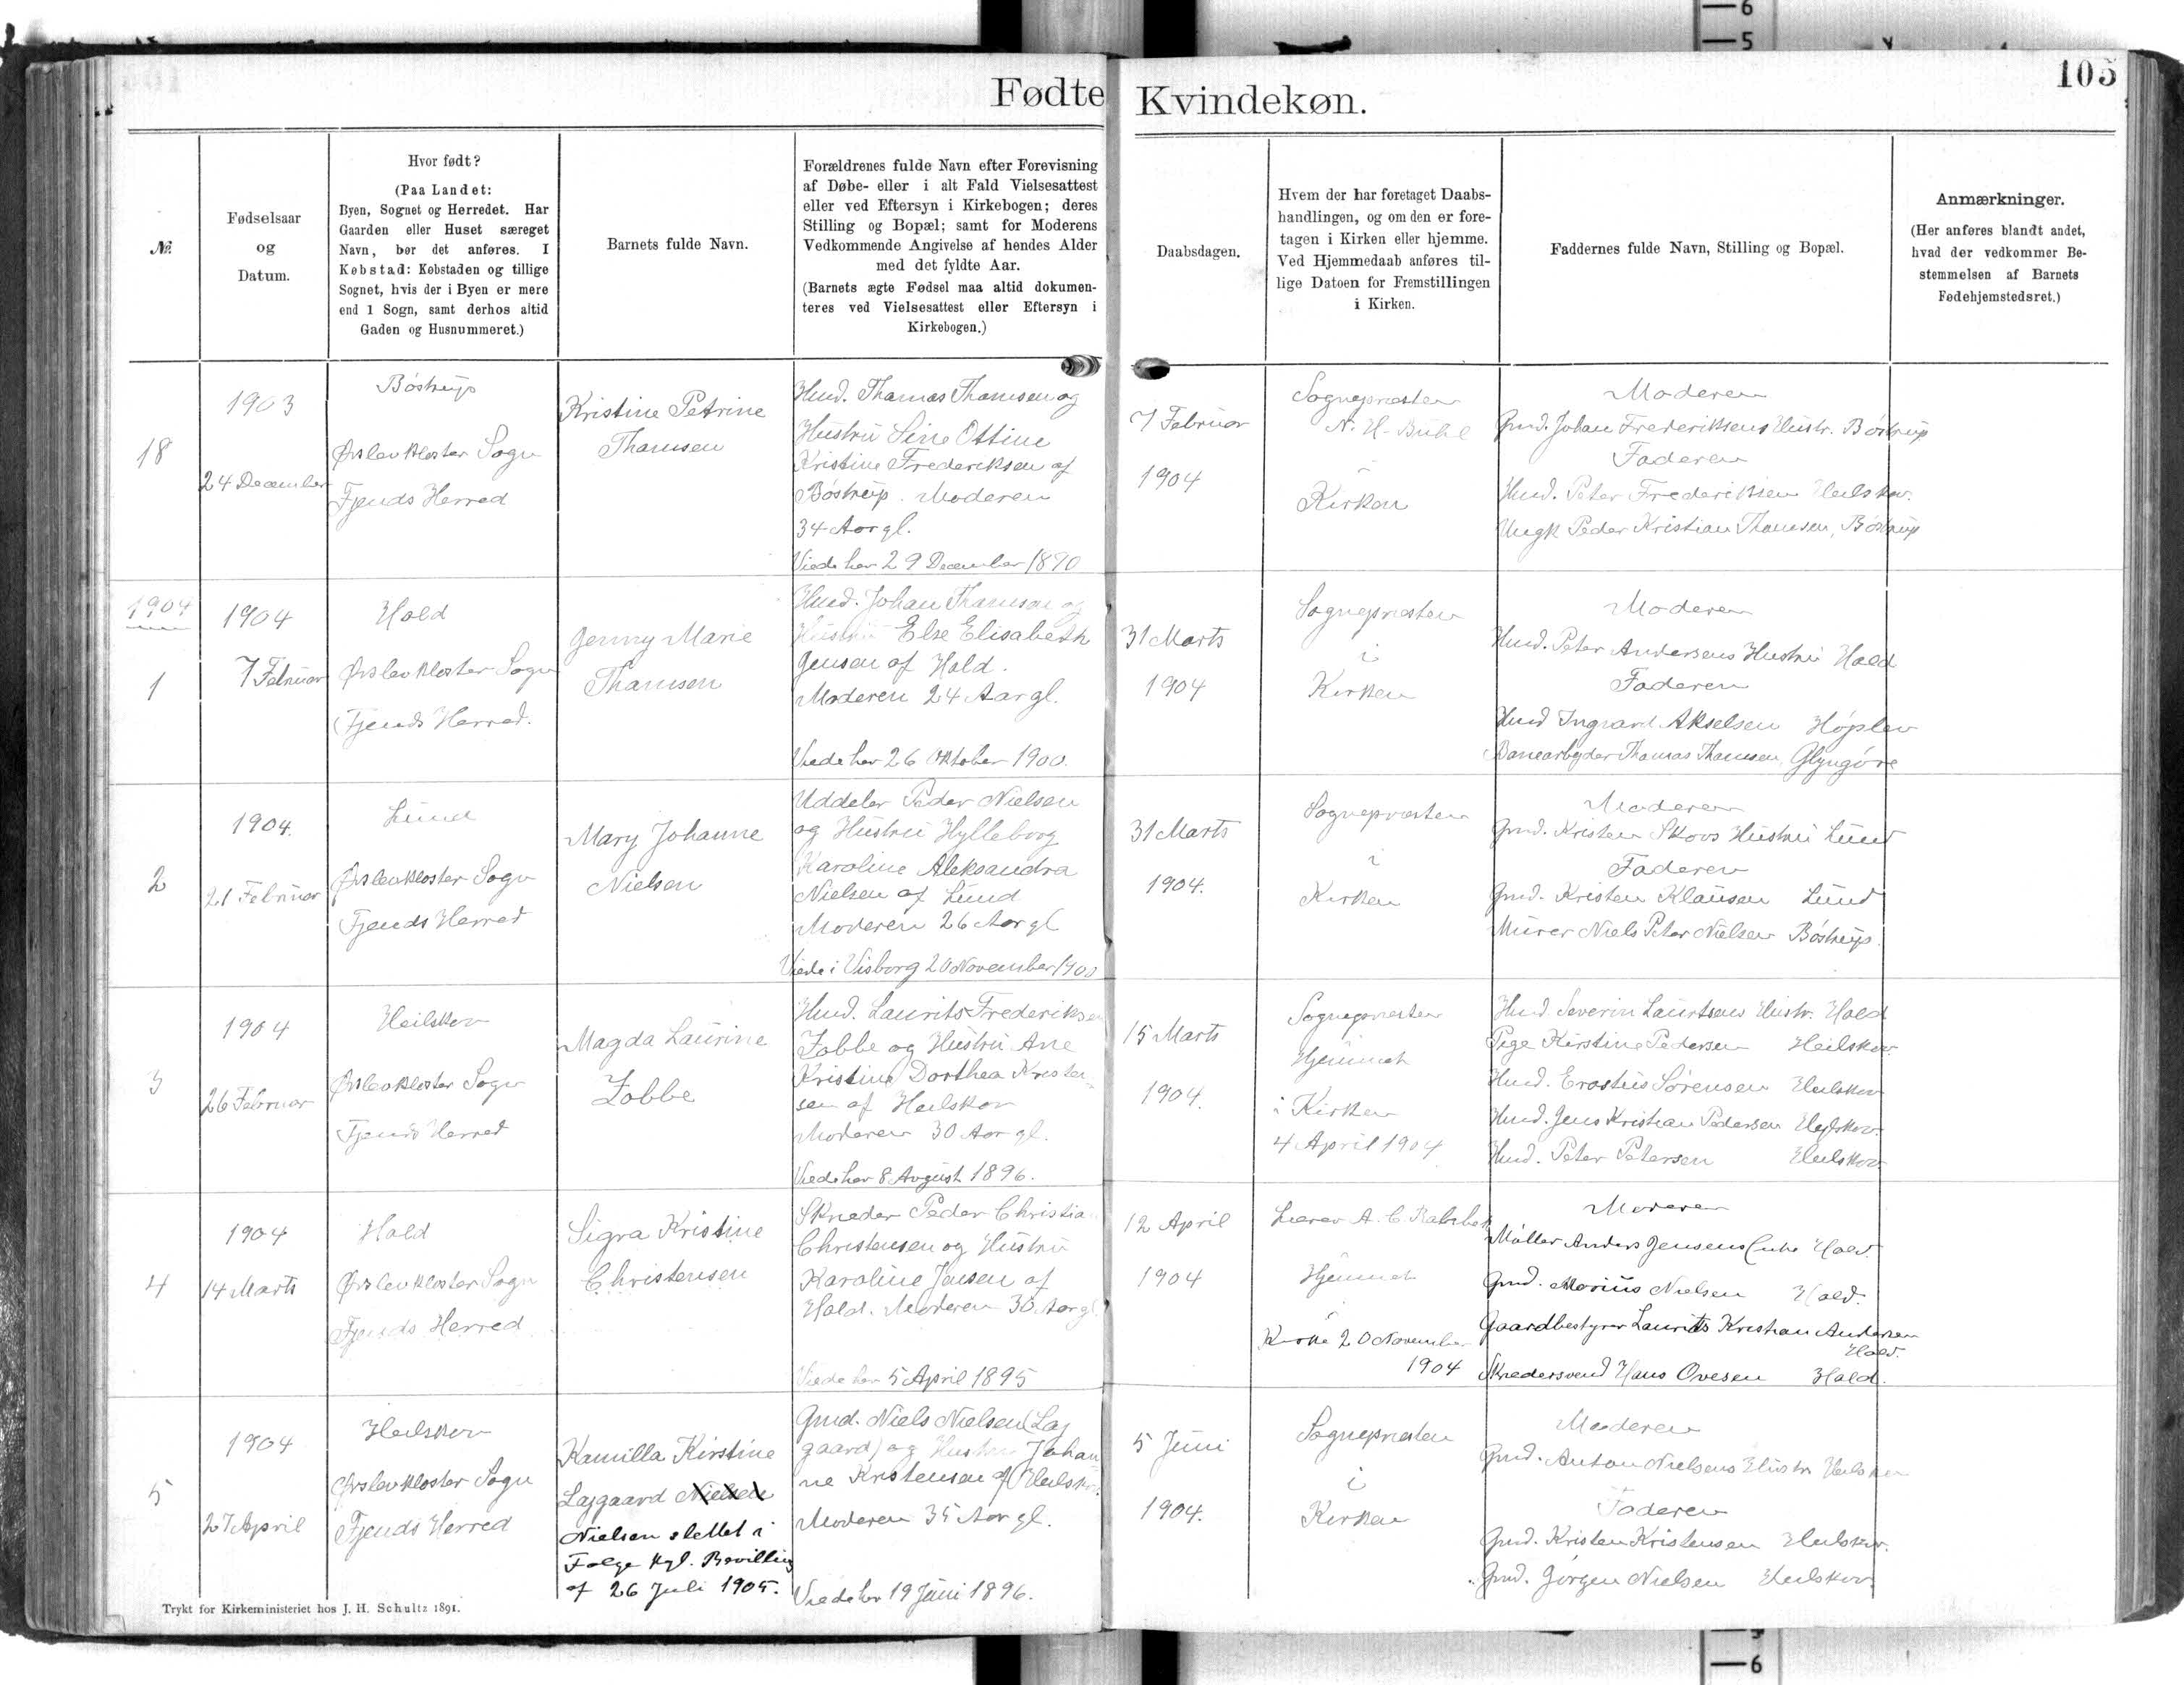 Fødte Kvindekøn.
105
№
Fødselsaar
og
Datum.
Hvor født?
(Paa Landet:
Byen, Sognet og Herredet. Har
Gaarden eller Huset særeget
Navn, bør det anføres. I
Købstad: Købstaden og tillige
Sognet, hvis der i Byen er mere
end 1 Sogn, samt derhos altid
Gaden og Husnummeret.)
Barnets fulde Navn.
Forældrenes fulde Navn efter Forevisning
af Døbe- eller i alt Fald Vielsesattest
eller ved Eftersyn i Kirkebogen; deres
Stilling og Bopæl; samt for Moderens
Vedkommende Angivelse af hendes Alder
med det fyldte Aar.
(Barnets ægte Fødsel maa altid dokumen-
teres ved Vielsesattest eller Eftersyn i
Kirkebogen.)
Daabsdagen.
Hvem der har foretaget Daabs-
handlingen, og om den er fore-
tagen i Kirken eller hjemme.
Ved Hjemmedaab anføres til-
lige Datoen for Fremstillingen
i Kirken.
Faddernes fulde Navn, Stilling og Bopæl.
Anmærkninger.
(Her anføres blandt andet,
hvad der vedkommer Be-
stemmelsen af Barnets
Fødehjemstedsret.)
18
1903
24 December
Bøstrup
Ørslevkloster Sogn
Fjends Herred
Kristine Petrine
Thamsen
Hmd. Thamas Thamsen og
Hustru Sine Ottine
Kristine Frederiksen af
Bøstrup. Moderen
34 Aar gl.
Viede her 29 December 1890
7 Februar
1904
Sognepræsten
N. H. Buhl
i
Kirken
Moderen
Gmd. Johan Frederiksens Hustr. Bøstrup
Faderen
Hmd. Peter Frederiksen Heilskov.
Ungk Peder Kristian Thamsen, Bøstrup
1904
1
1904
7 Februar
Hald
Ørslevkloster Sogn
Fjends Herred.
Jenny Marie
Thamsen
Hmd. Johan Thamsen og
Hustru Else Elisabeth
Jensen af Hald.
Moderen 24 Aar gl.
Viede her 26 Oktober 1900.
31 Marts
1904
Sognepræsten
i
Kirken
Moderen
Hmd. Peter Andersens Hustru Hald
Faderen
Hmd Ingvard Akselsen Højslev
Banearbejder Thamas Thamsen, Glyngøre
2
1904.
21 Februar
Lund
Ørslevkloster Sogn
Fjends Herred
Mary Johanne
Nielsen
Uddeler Peder Nielsen
og Hustru Hylleborg
Karoline Aleksandra
Nielsen af Lund
Moderen 26 Aar gl
Viede i Visborg 20 November 1900
31 Marts
1904.
Sognepræsten
i
Kirken
Moderen
Gmd. Kristen Skovs Hustru Lund
Faderen
Gmd. Kristen Klausen Lund
Murer Niels Peter Nielsen Bøstrup.
3
1904
26 Februar
Heilskov
Ørslevkloster Sogn
Fjends Herred
Magda Laurine
Zobbe
Hmd. Laurits Frederiksen
Zobbe og Hustru Ane
Kristine Dorthea Kristen-
sen af Heilskov
Moderen 30 Aar gl.
Viede her 8 August 1896.
15 Marts
1904.
Sognepræsten
Hjemmet
i Kirken
4 April 1904
Hmd. Severin Lauritsens Hustr. Hald
Pige Kirstine Pedersen Heilskov.
Hmd. Erastus Sørensen Heilskov
Hmd. Jens Kristian Pedersen Hejlskov.
Hmd. Peter Petersen Heilskov.
4
1904
14 Marts
Hald
Ørslevkloster Sogn
Fjends Herred
Sigra Kristine
Christensen
Skræder Peder Christian
Christensen og Hustru
Karoline Jensen af
Hald. Moderen 30 Aar gl.
Viede her 5 April 1895
12 April
1904
Lærer A. C.
Hjemmet
i
Kirke 20 November
1904
Moderen
Møller Anders Jensens Hald.
Gmd. Marius Nielsen Hald.
Gaardbestyrer Laurits Kristian Andersen
Hald.
Skrædersvend Hans Ovesen Hald.
5
1904
27 April
Heilskov
Ørslevkloster Sogn
Fjends Herred
Kamilla Kirstine
Lajgaard Nielsen
Nielsen slettet i
Følge Kgl. Bevilling
af 26 Juli 1905.
Gmd. Niels Nielsen (Laj
gaard) og Hustru Johan-
ne Kristensen af Heilskov.
Moderen 35 Aar gl.
Viede her 19 Juni 1896.
5 Juni
1904.
Sognepræsten
i
Kirken
Moderen
Gmd. Anton Nielsens Hustr Heilskov
Faderen
Gmd. Kristen Kristensen Heilskov.
Gmd. Jørgen Nielsen Heilskov.
Trykt for Kirkeministeriet hos J. H. Schultz 1891.
6
5
6